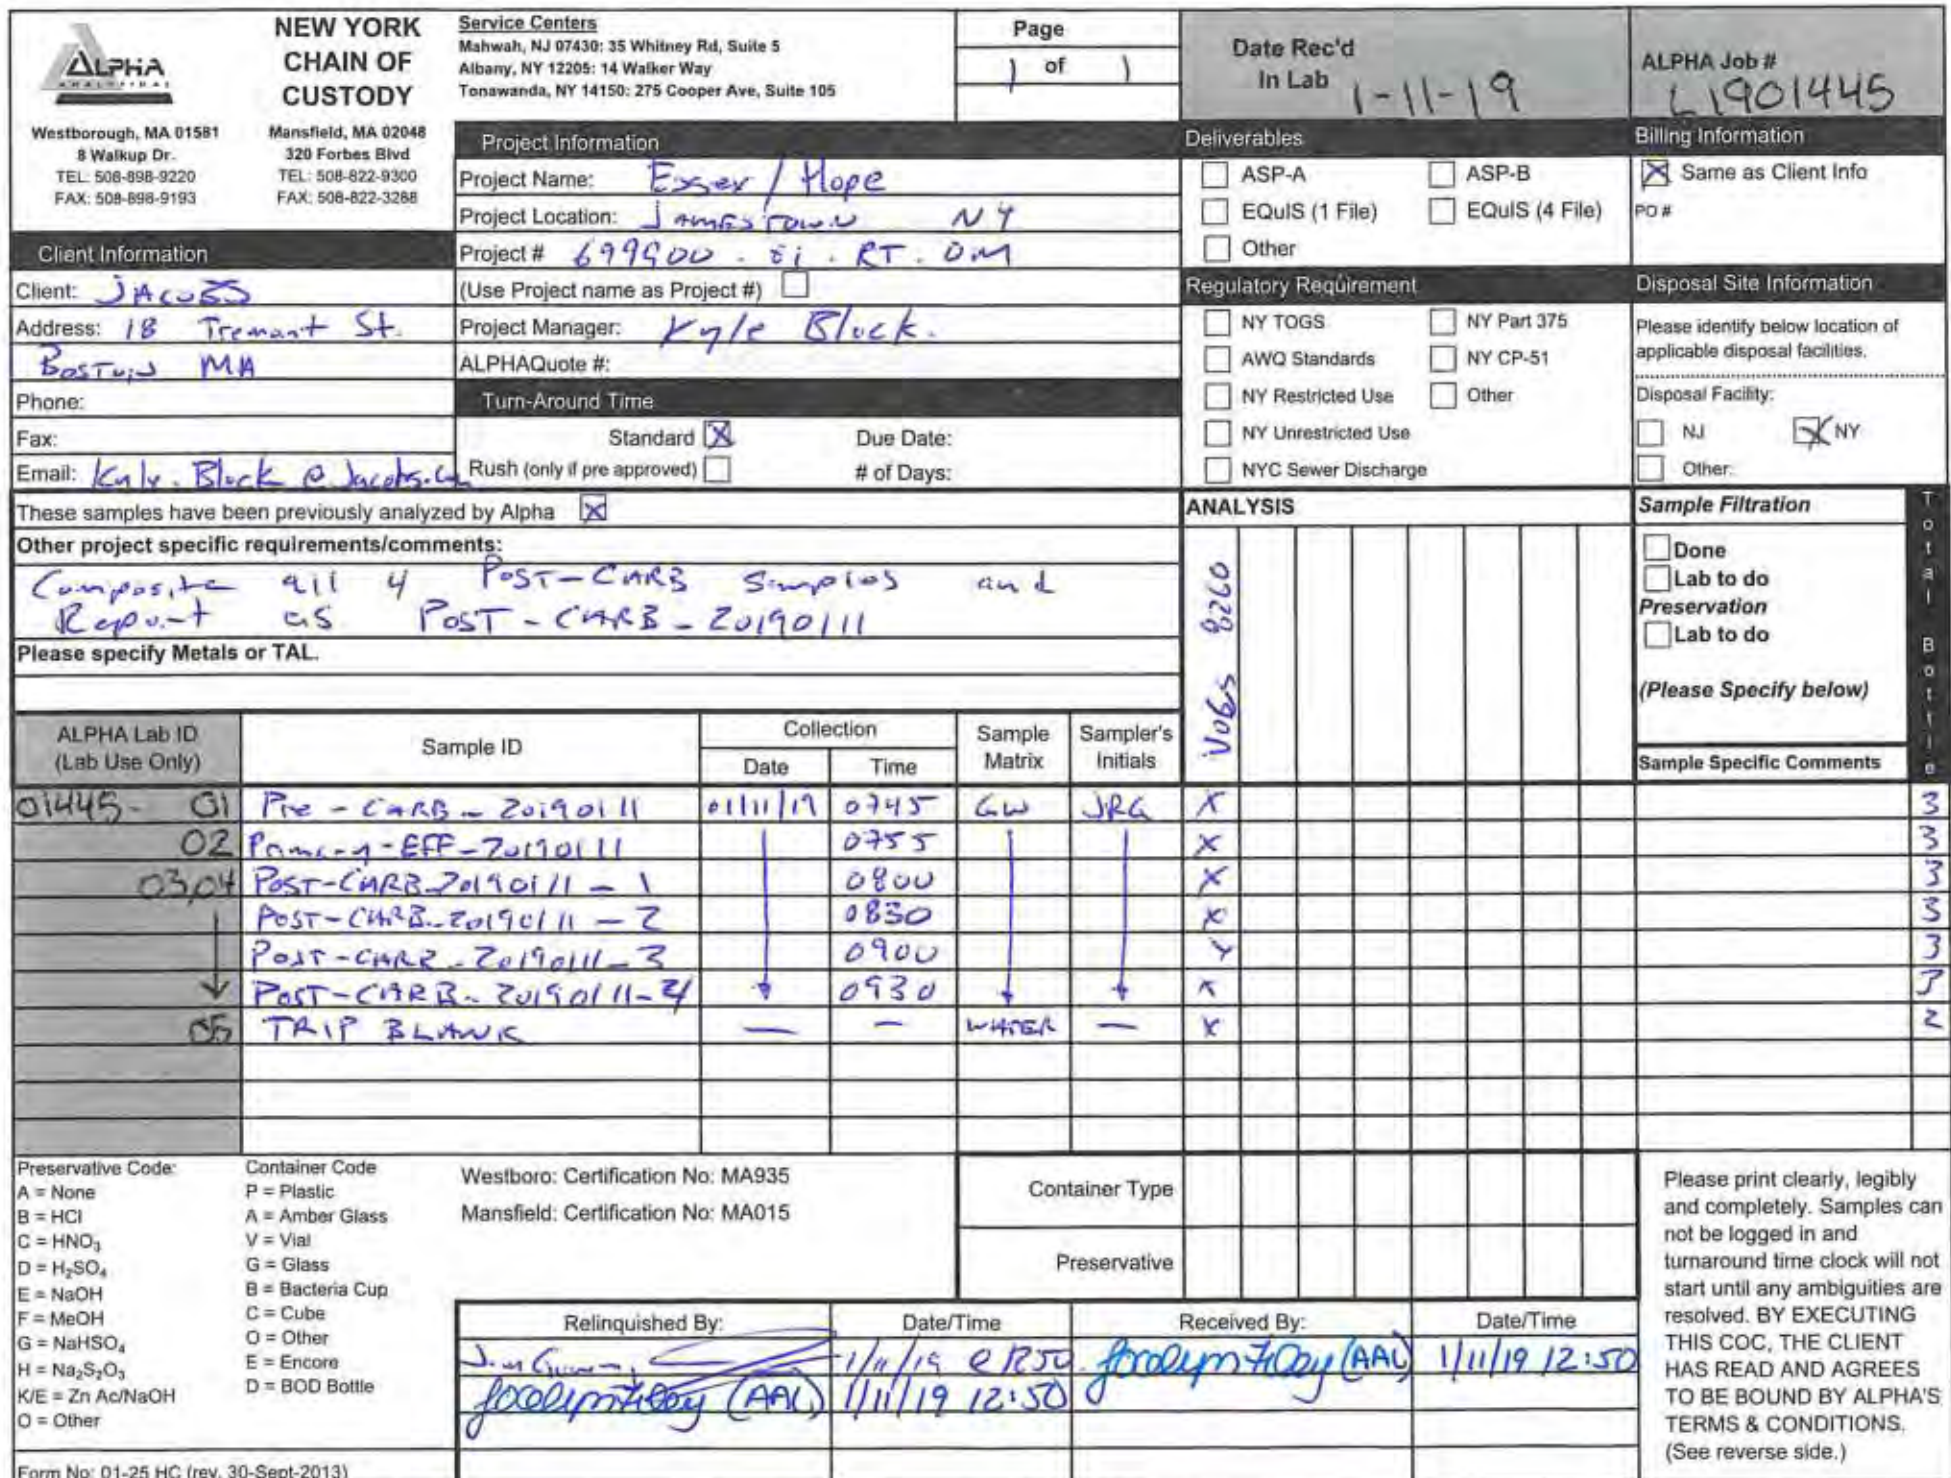 ALPHA
ANALYTICAL
NEW YORK
CHAIN OF
CUSTODY
Westborough, MA 01581
8 Walkup Dr.
TEL: 508-898-9220
FAX: 508-898-9193
Mansfield, MA 02048
320 Forbes Blvd
TEL: 508-822-9300
FAX: 508-822-3288
Service Centers
Mahwah, NJ 07430: 35 Whitney Rd, Suite 5
Albany, NY 12205: 14 Walker Way
Tonawanda, NY 14150: 275 Cooper Ave, Suite 105
Page
1 of 1
Date Rec'd
In Lab 1-11-19
ALPHA Job #
L1901445
Project Information
Project Name: Essex / Hope
Project Location: JAMESTOWN NY
Project # 699900 . . RT . OM
(Use Project name as Project #)
Project Manager: Kyle Block.
ALPHAQuote #:
Turn-Around Time
Standard X Due Date:
Rush (only if pre approved) # of Days:
Client Information
Client: JACOBS
Address: 18 Tremont St.
BOSTON MA
Phone:
Fax:
Email: Kyle.Block@Jacobs.com
Deliverables
ASP-A ASP-B
EQuIS (1 File) EQuIS (4 File)
Other
Regulatory Requirement
NY TOGS NY Part 375
AWQ Standards NY CP-51
NY Restricted Use Other
NY Unrestricted Use
NYC Sewer Discharge
Billing Information
X Same as Client Info
PO #
Disposal Site Information
Please identify below location of
applicable disposal facilities.
Disposal Facility:
NJ X NY
Other:
These samples have been previously analyzed by Alpha X
Other project specific requirements/comments:
Composite all 4 POST-CARB Samples and
Report as POST-CARB-20190111
Please specify Metals or TAL.
ANALYSIS
VOCs 8260
Sample Filtration
Done
Lab to do
Preservation
Lab to do
(Please Specify below)
Total Bottle
ALPHA Lab ID
(Lab Use Only)
Sample ID
Collection
Date Time
Sample
Matrix
Sampler's
Initials
Sample Specific Comments
01445- 01 Pre-CARB-20190111 01/11/19 0745 GW JRG X 3
02 Primary-EFF-20190111 0755 X 3
03,04 POST-CARB-20190111-1 0800 X 3
POST-CARB-20190111-2 0830 X 3
POST-CARB-20190111-3 0900 X 3
POST-CARB-20190111-4 0930 X 3
05 TRIP BLANK — — WATER — X 2
Preservative Code:
A = None
B = HCl
C = HNO3
D = H2SO4
E = NaOH
F = MeOH
G = NaHSO4
H = Na2S2O3
K/E = Zn Ac/NaOH
O = Other
Container Code
P = Plastic
A = Amber Glass
V = Vial
G = Glass
B = Bacteria Cup
C = Cube
O = Other
E = Encore
D = BOD Bottle
Westboro: Certification No: MA935
Mansfield: Certification No: MA015
Container Type
Preservative
Relinquished By: Date/Time Received By: Date/Time
1/11/19 @ 1250 (AAL) 1/11/19 12:50
(AAL) 1/11/19 12:50
Please print clearly, legibly
and completely. Samples can
not be logged in and
turnaround time clock will not
start until any ambiguities are
resolved. BY EXECUTING
THIS COC, THE CLIENT
HAS READ AND AGREES
TO BE BOUND BY ALPHA'S
TERMS & CONDITIONS.
(See reverse side.)
Form No: 01-25 HC (rev. 30-Sept-2013)